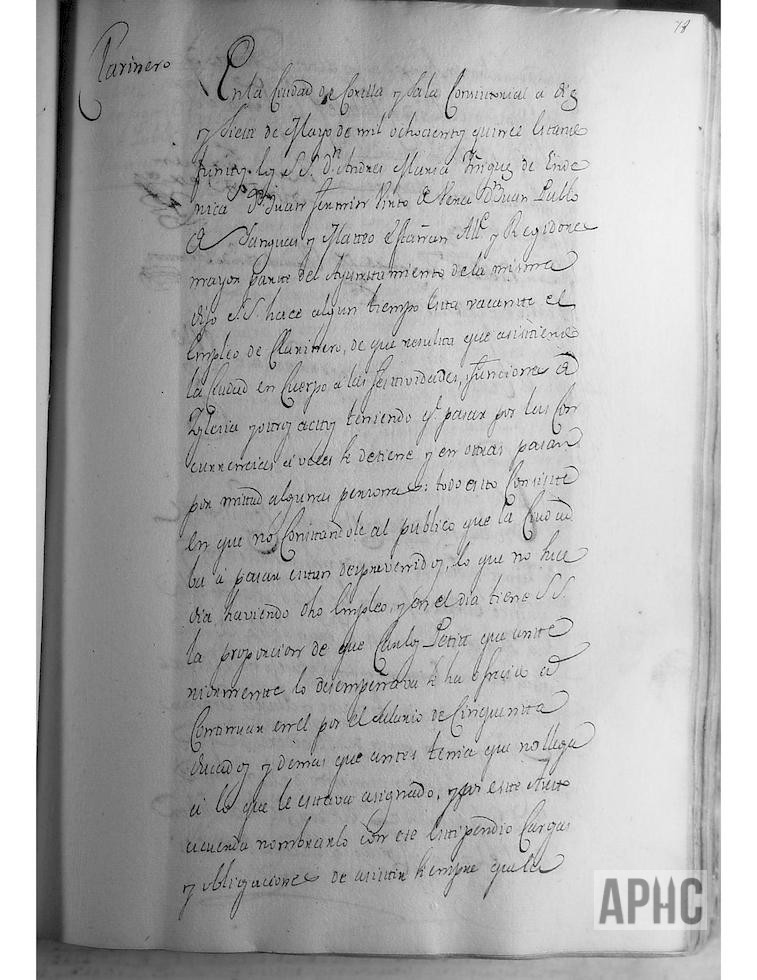 78
Clarinero
En la Ciudad de Corella y Sala Consistorial a diez
y siete de Mayo de mil ochocientos quince estando
juntos los SS. Dn Andres Maria Yñiguez de
Dn Juan Fermin Pinto Dn Juan Pablo
y Matteo Escañan Alc. y Regidores
mayor parte del Ayuntamiento de la misma
dijo S.S. hace algun tiempo esta vacante el
Empleo de Clarinero, de que resulta que asistiendo
la Ciudad en Cuerpo a las festividades, funciones de
Yglesia y otros actos teniendo q.e pasar por las Con
currencias a veces se detiene y en otras pasan
por mitad algunas personas: todo esto Consiste
en que no Constandole al publico que la Ciudad
ba á pasar estan desprevenidos, lo que no suce
dia haviendo dho Empleo, y en el dia tiene S.S.
la proporcion de que Carlos Petit que ante
riormente lo desempeñava se ha ofrecido a
Continuar en el por el salario de Cinquenta
ducados y demas que antes tenia que no llega
á lo que le estava asignado, y por este Auto
acuerda nombrarlo con ese Estipendio Cargas
y obligaciones de asistir siempre que la
APHC